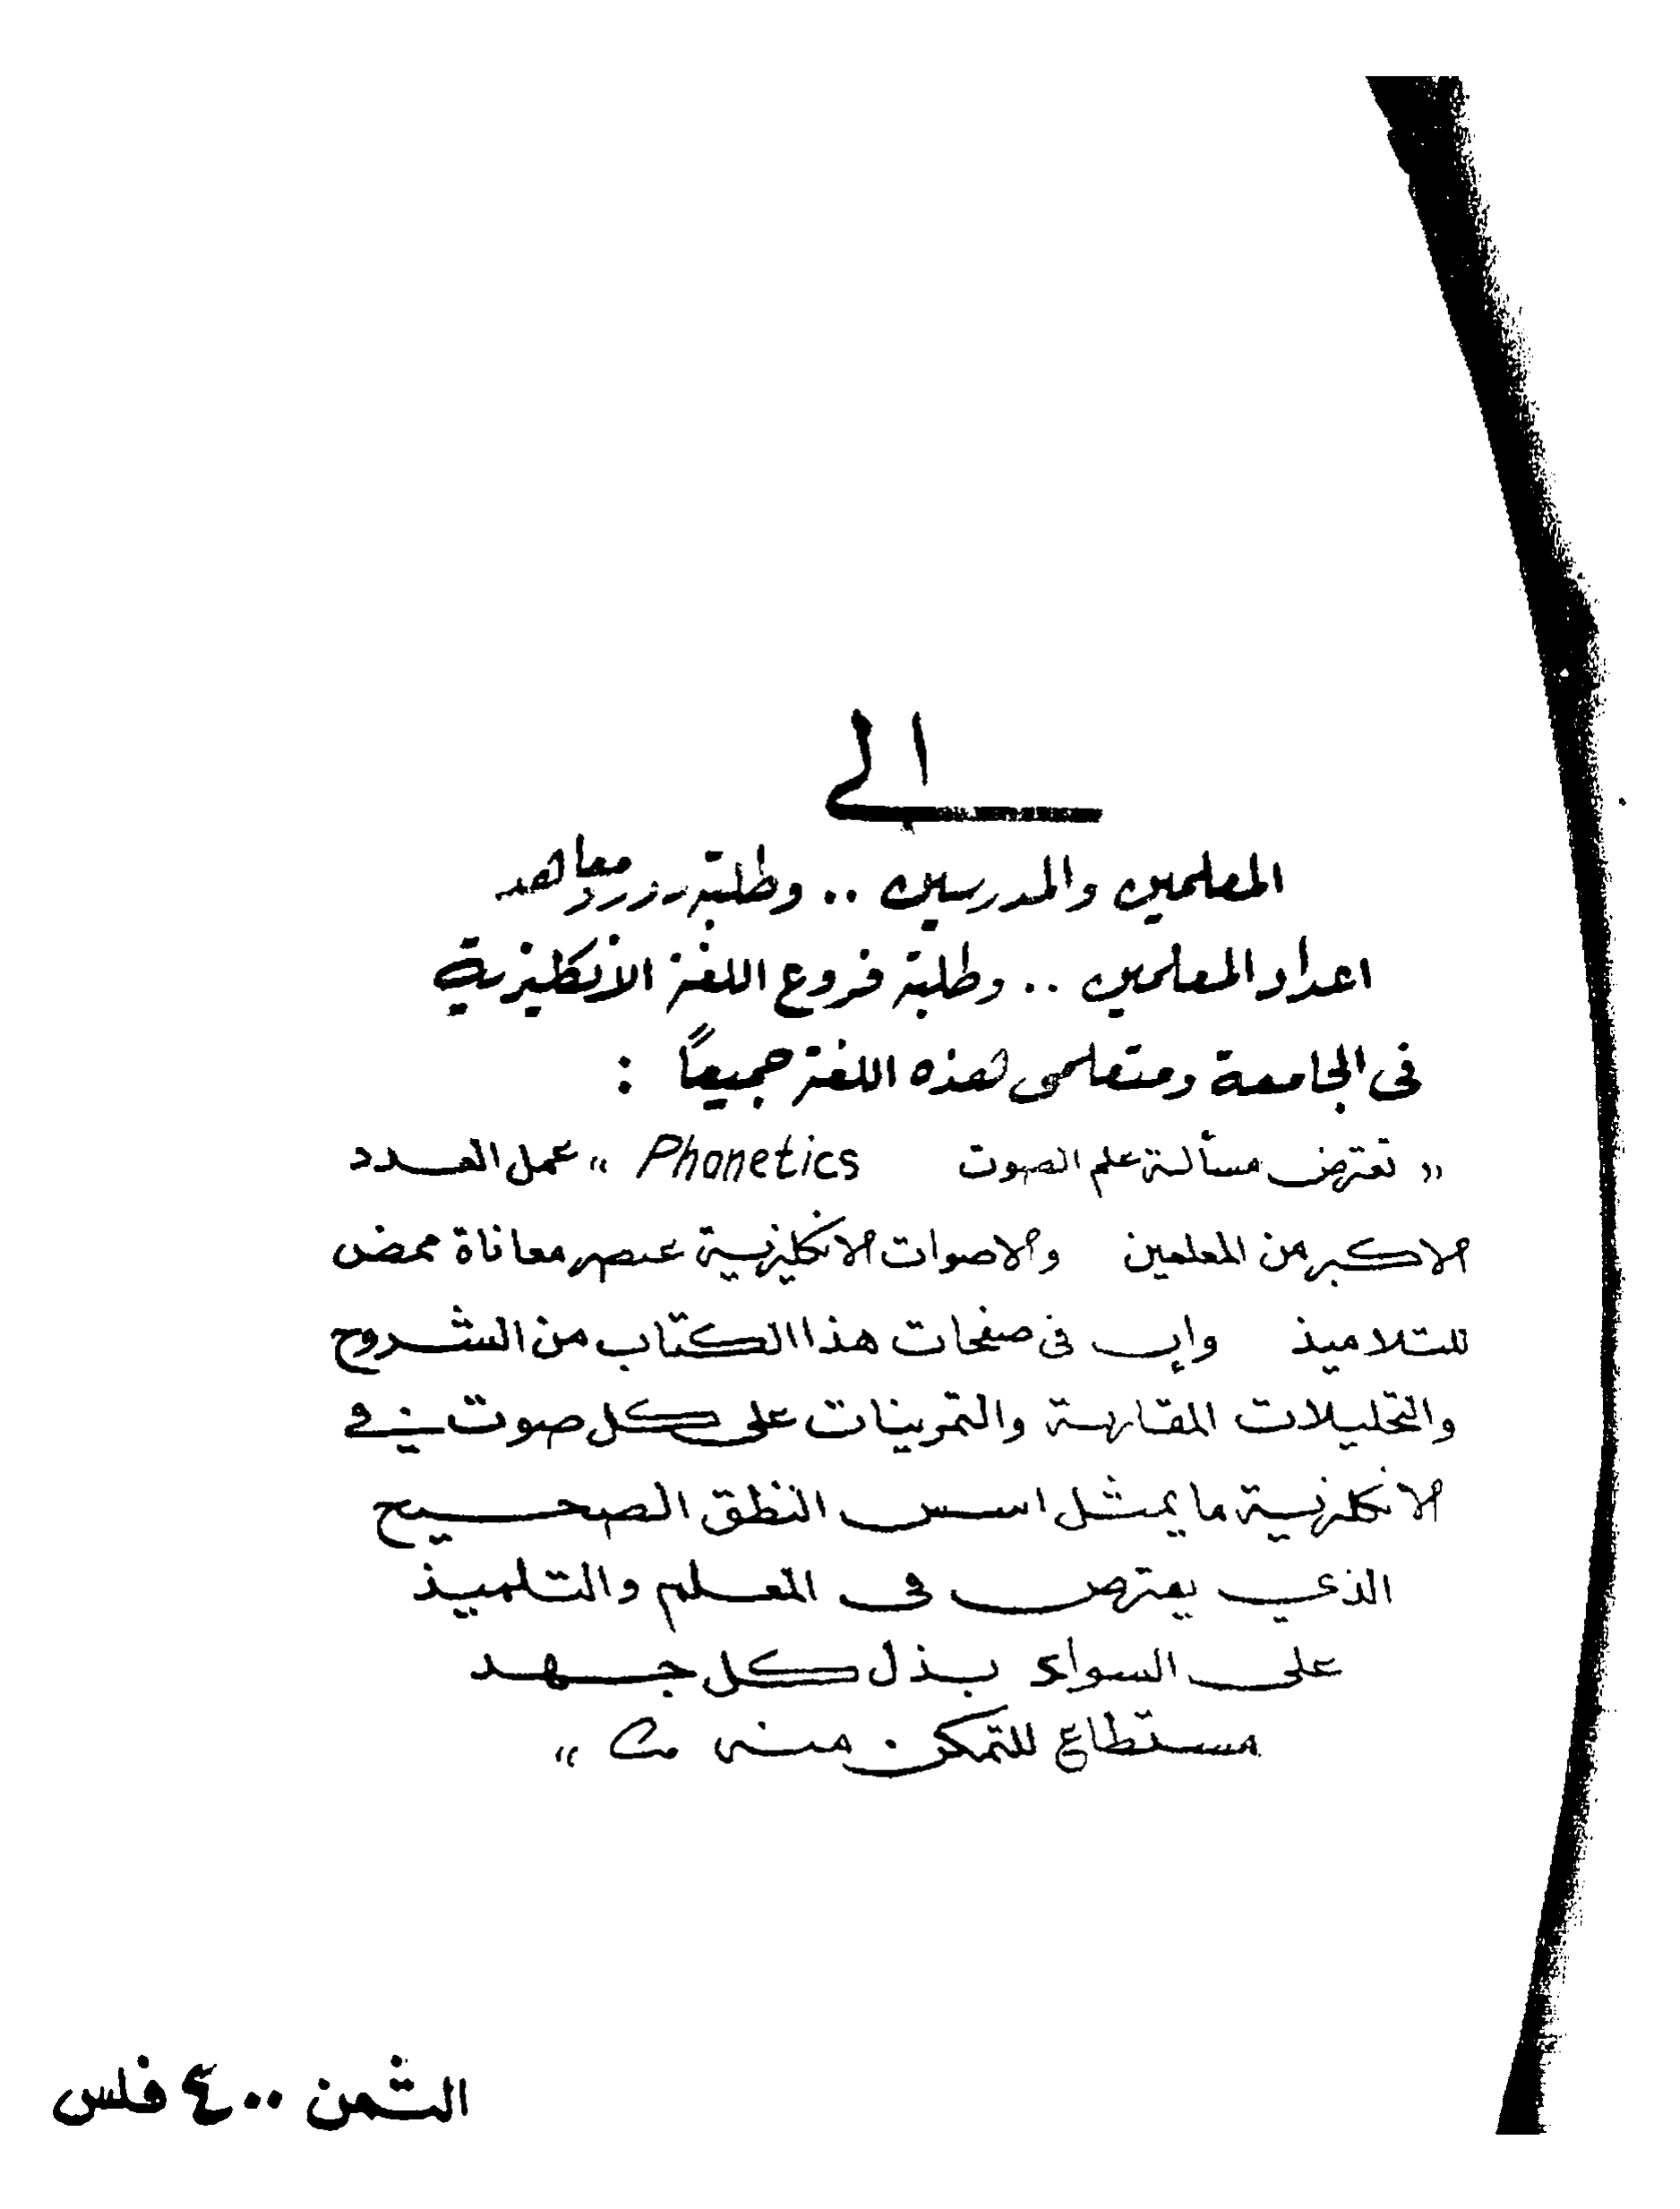 الى
المعلمين والمدرسين .. وطلبة دور ومعاهد
اعداد المعلمين .. وطلبة فروع اللغة الانكليزية
فى الجامعة ومتعلمى هذه اللغة جميعاً :
" تعترض مسألة علم الصوت Phonetics " عمل العدد
الاكبر من المعلمين والاصوات الانكليزية عنصر معاناة ممض
للتلاميذ وان فى صفحات هذا الكتاب من الشروح
والتحليلات المقارنة والتمرينات على كل صوت فى
الانكلزية ما يمثل اسس النطق الصحيح
الذي يفترض فى المعلم والتلميذ
على السواء بذل كل جهد
مستطاع للتمكن منه "
الثمن ٤٠٠ فلس